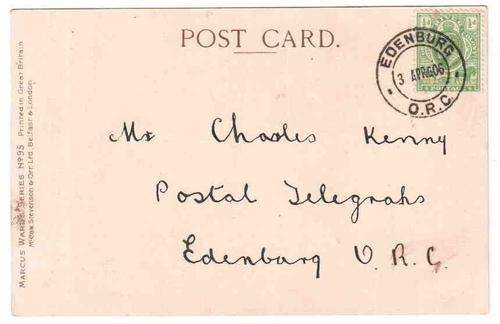 POST CARD.
EDENBURG
3 APR 06
O.R.C.
½d ½d
Mr Charles Kenny
Postal Telegrahs
Edenburg O. R. C.
MARCUS WARD'S SERIES Nº 95 Printed in Great Britain
McCaw, Stevenson & Orr, Ltd., Belfast & London